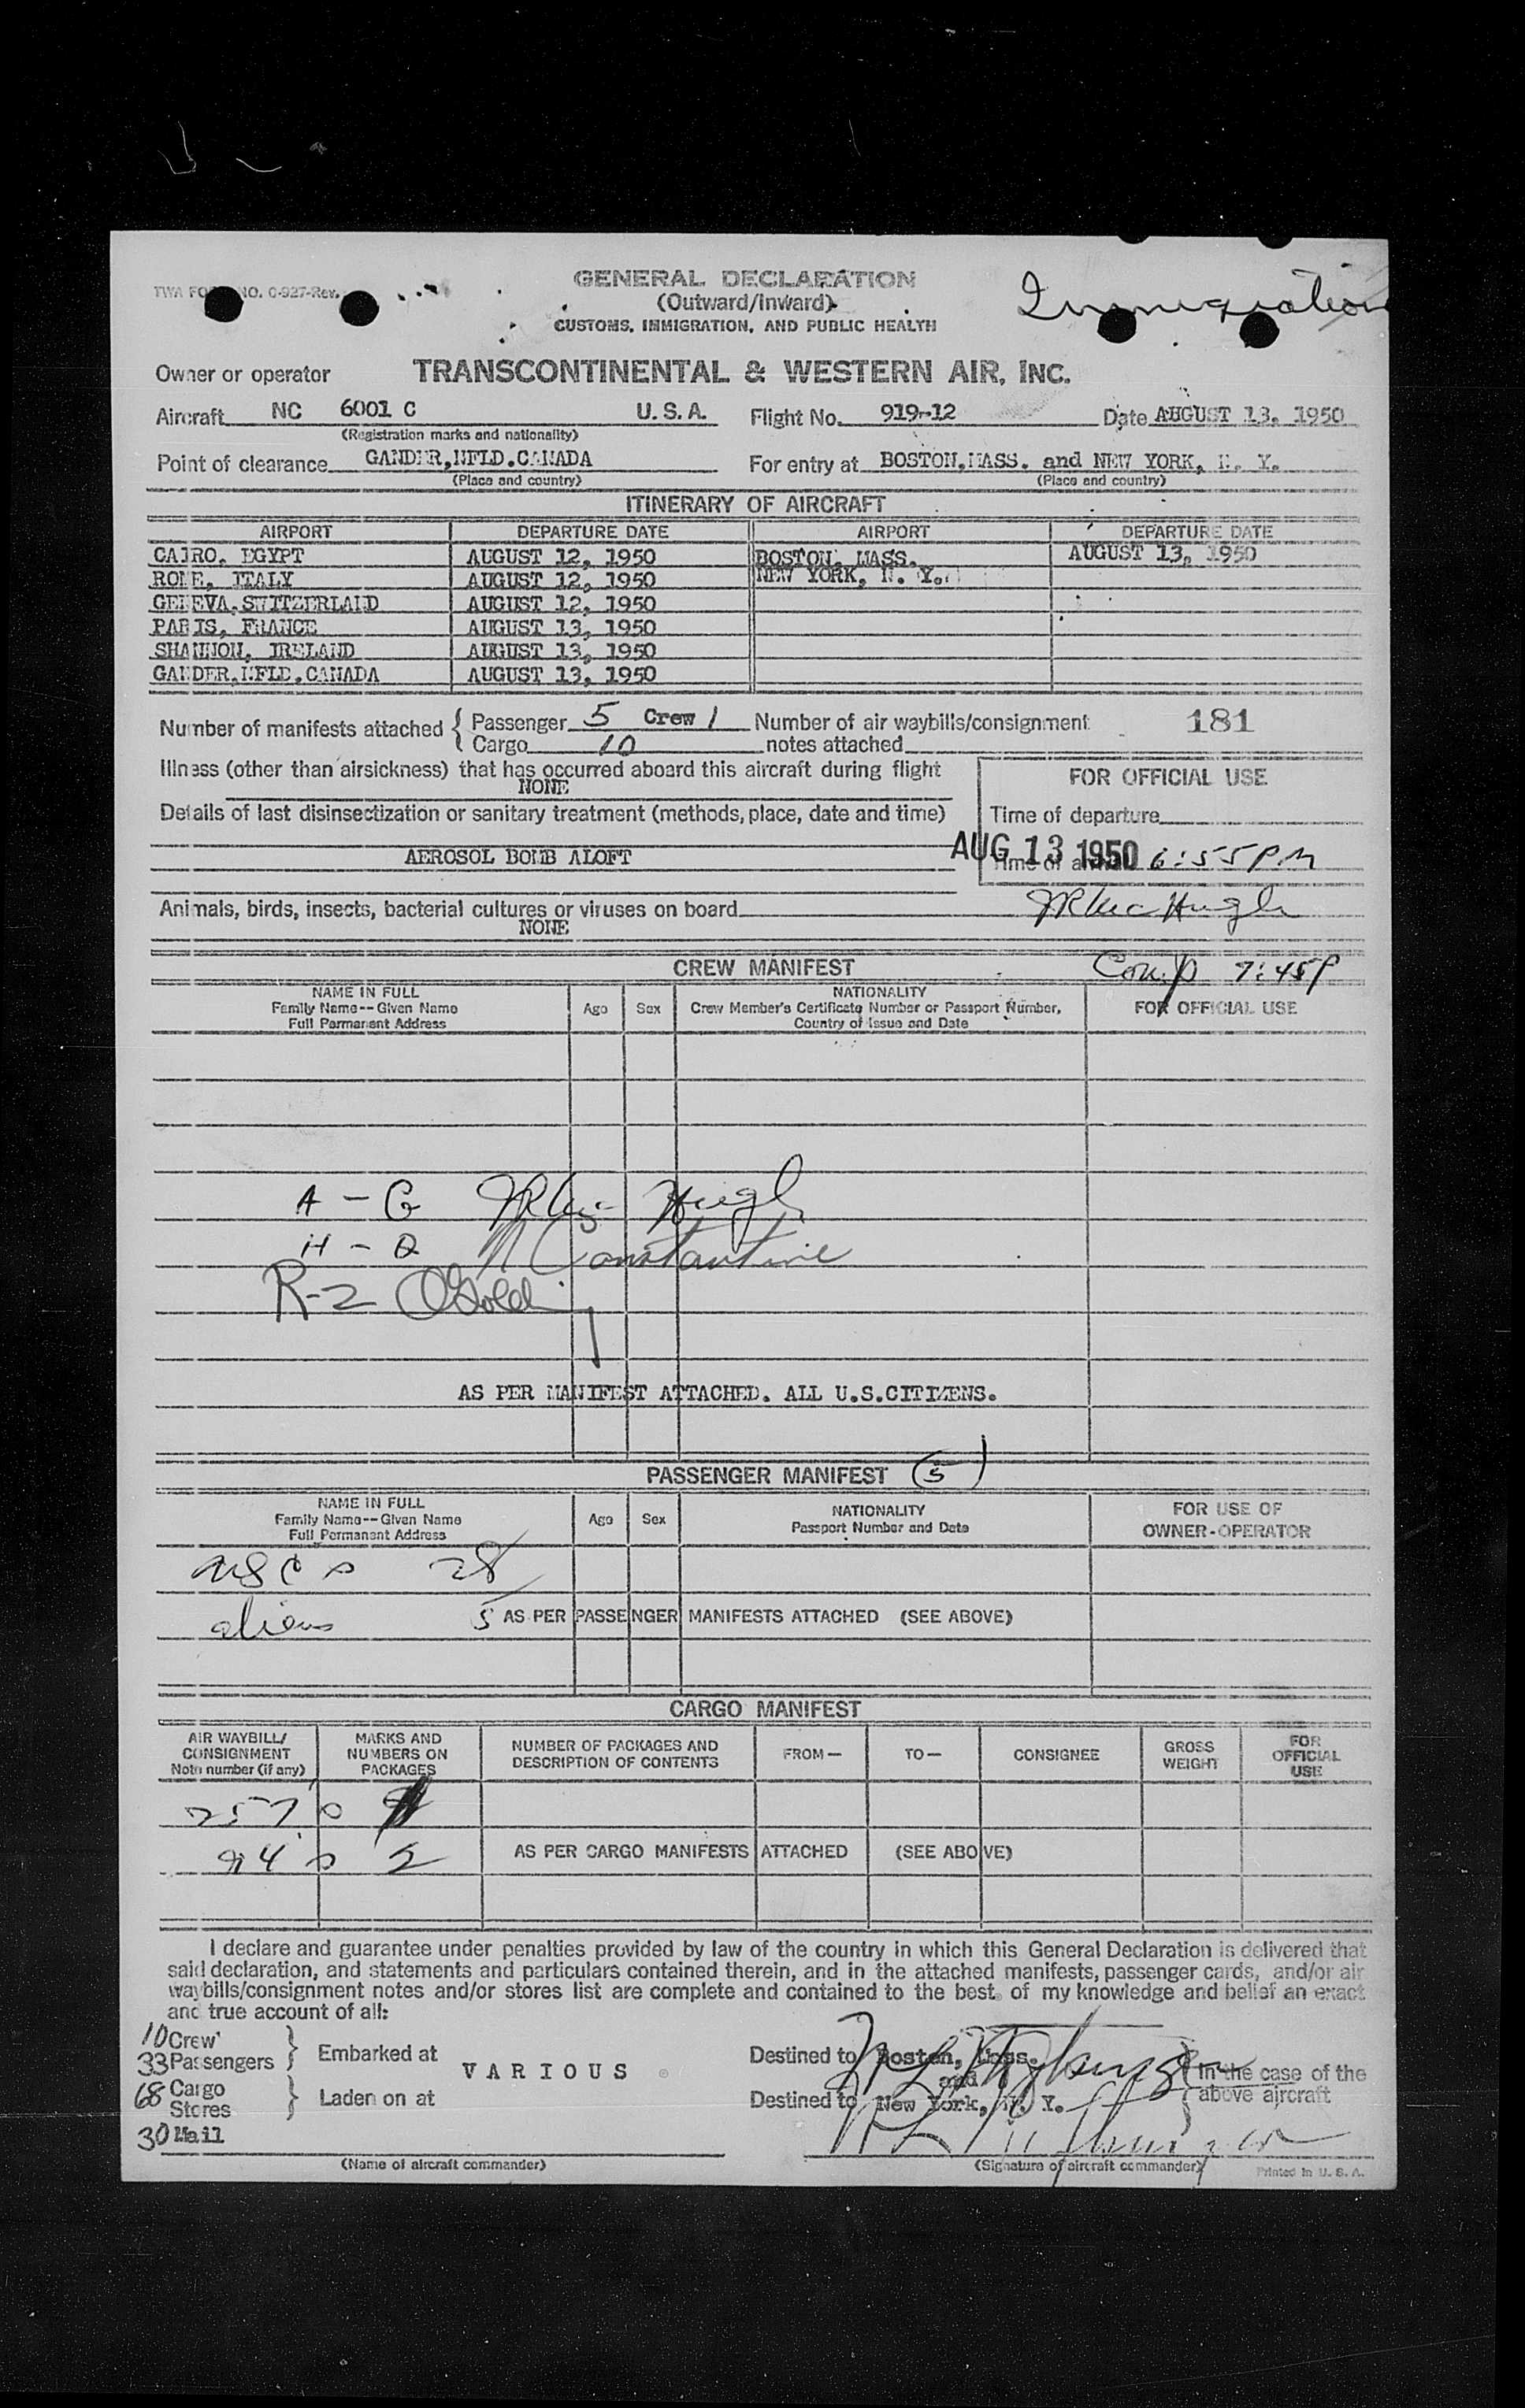 TWA FO NO. 0-927-Rev.
GENERAL DECLARATION
(Outward/Inward)
CUSTOMS, IMMIGRATION, AND PUBLIC HEALTH
Immigration
Owner or operator TRANSCONTINENTAL & WESTERN AIR, INC.
Aircraft NC 6001 C U.S.A. Flight No. 919-12 Date AUGUST 13, 1950
(Registration marks and nationality)
Point of clearance GANDER,NFLD.CANADA For entry at BOSTON,MASS. and NEW YORK, N. Y.
(Place and country) (Place and country)
ITINERARY OF AIRCRAFT
AIRPORT DEPARTURE DATE AIRPORT DEPARTURE DATE
CAIRO, EGYPT AUGUST 12, 1950 BOSTON, MASS. AUGUST 13, 1950
ROME, ITALY AUGUST 12, 1950 NEW YORK, N. Y.
GENEVA,SWITZERLAND AUGUST 12, 1950
PARIS, FRANCE AUGUST 13, 1950
SHANNON, IRELAND AUGUST 13, 1950
GANDER,NFLD.CANADA AUGUST 13, 1950
Number of manifests attached { Passenger 5 Crew 1 Number of air waybills/consignment 181
Cargo 10 notes attached
Illness (other than airsickness) that has occurred aboard this aircraft during flight
NONE
FOR OFFICIAL USE
Details of last disinsectization or sanitary treatment (methods, place, date and time)
Time of departure
AEROSOL BOMB ALOFT
AUG 13 1950 6:55 PM
Time of
Animals, birds, insects, bacterial cultures or viruses on board
NONE
CREW MANIFEST
Comp 7:45P
NAME IN FULL
Family Name--Given Name
Full Permanent Address
Age Sex
NATIONALITY
Crew Member's Certificate Number or Passport Number,
Country of Issue and Date
FOR OFFICIAL USE
A - G
H - Q Constantine
R-2
AS PER MANIFEST ATTACHED. ALL U.S.CITIZENS.
PASSENGER MANIFEST (5)
NAME IN FULL
Family Name--Given Name
Full Permanent Address
Age Sex
NATIONALITY
Passport Number and Date
FOR USE OF
OWNER-OPERATOR
28
aliens 5 AS PER PASSENGER MANIFESTS ATTACHED (SEE ABOVE)
CARGO MANIFEST
AIR WAYBILL/
CONSIGNMENT
Note number (if any)
MARKS AND
NUMBERS ON
PACKAGES
NUMBER OF PACKAGES AND
DESCRIPTION OF CONTENTS
FROM— TO— CONSIGNEE
GROSS
WEIGHT
FOR
OFFICIAL
USE
257
94 AS PER CARGO MANIFESTS ATTACHED (SEE ABOVE)
I declare and guarantee under penalties provided by law of the country in which this General Declaration is delivered that
said declaration, and statements and particulars contained therein, and in the attached manifests, passenger cards, and/or air
waybills/consignment notes and/or stores list are complete and contained to the best of my knowledge and belief an exact
and true account of all:
10 Crew
33 Passengers } Embarked at
VARIOUS
68 Cargo
Stores } Laden on at
30 Mail
Destined to Boston, Mass.
and
Destined to New York, N. Y.
} In the case of the
above aircraft
(Name of aircraft commander)
(Signature of aircraft commander)
Printed in U. S. A.